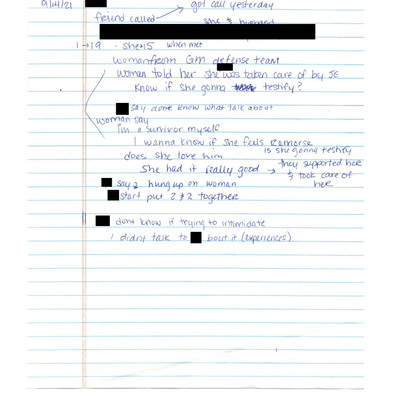 9/14/21 got call yesterday
friend called She & husband
1→19 - She 15 when met
woman from Gm defense team
woman told her she was taken care of by JE
know if she gonna testify?
say done know what talk about
woman say
I'm a survivor myself
I wanna know if she feels remorse
is she gonna testify
does she love him
they supported her
She had it really good → & took care of her
say 2 hung up on woman
start put 2 & 2 together
dont know if trying to intimidate
I didnt talk to bout it (experiences)